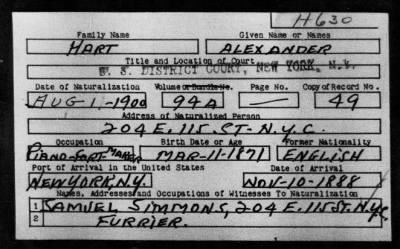 H630
Family Name Given Name or Names
HART ALEXANDER
Title and Location of Court
U. S. DISTRICT COURT, NEW YORK, N.Y.
Date of Naturalization Volume or Bundle No. Page No. Copy of Record No.
AUG-1,-1900 94A — 49
Address of Naturalized Person
204 E. 115. ST- N.Y.C.
Occupation Birth Date or Age Former Nationality
PIANO-FORT MAKER MAR-11-1871 ENGLISH
Port of Arrival in the United States Date of Arrival
NEW YORK, N.Y. NOV-10-1888
Names, Addresses and Occupations of Witnesses To Naturalization
1 SAMUEL SIMMONS, 204 E. 115 ST. N.Y.C.
2 FURRIER.